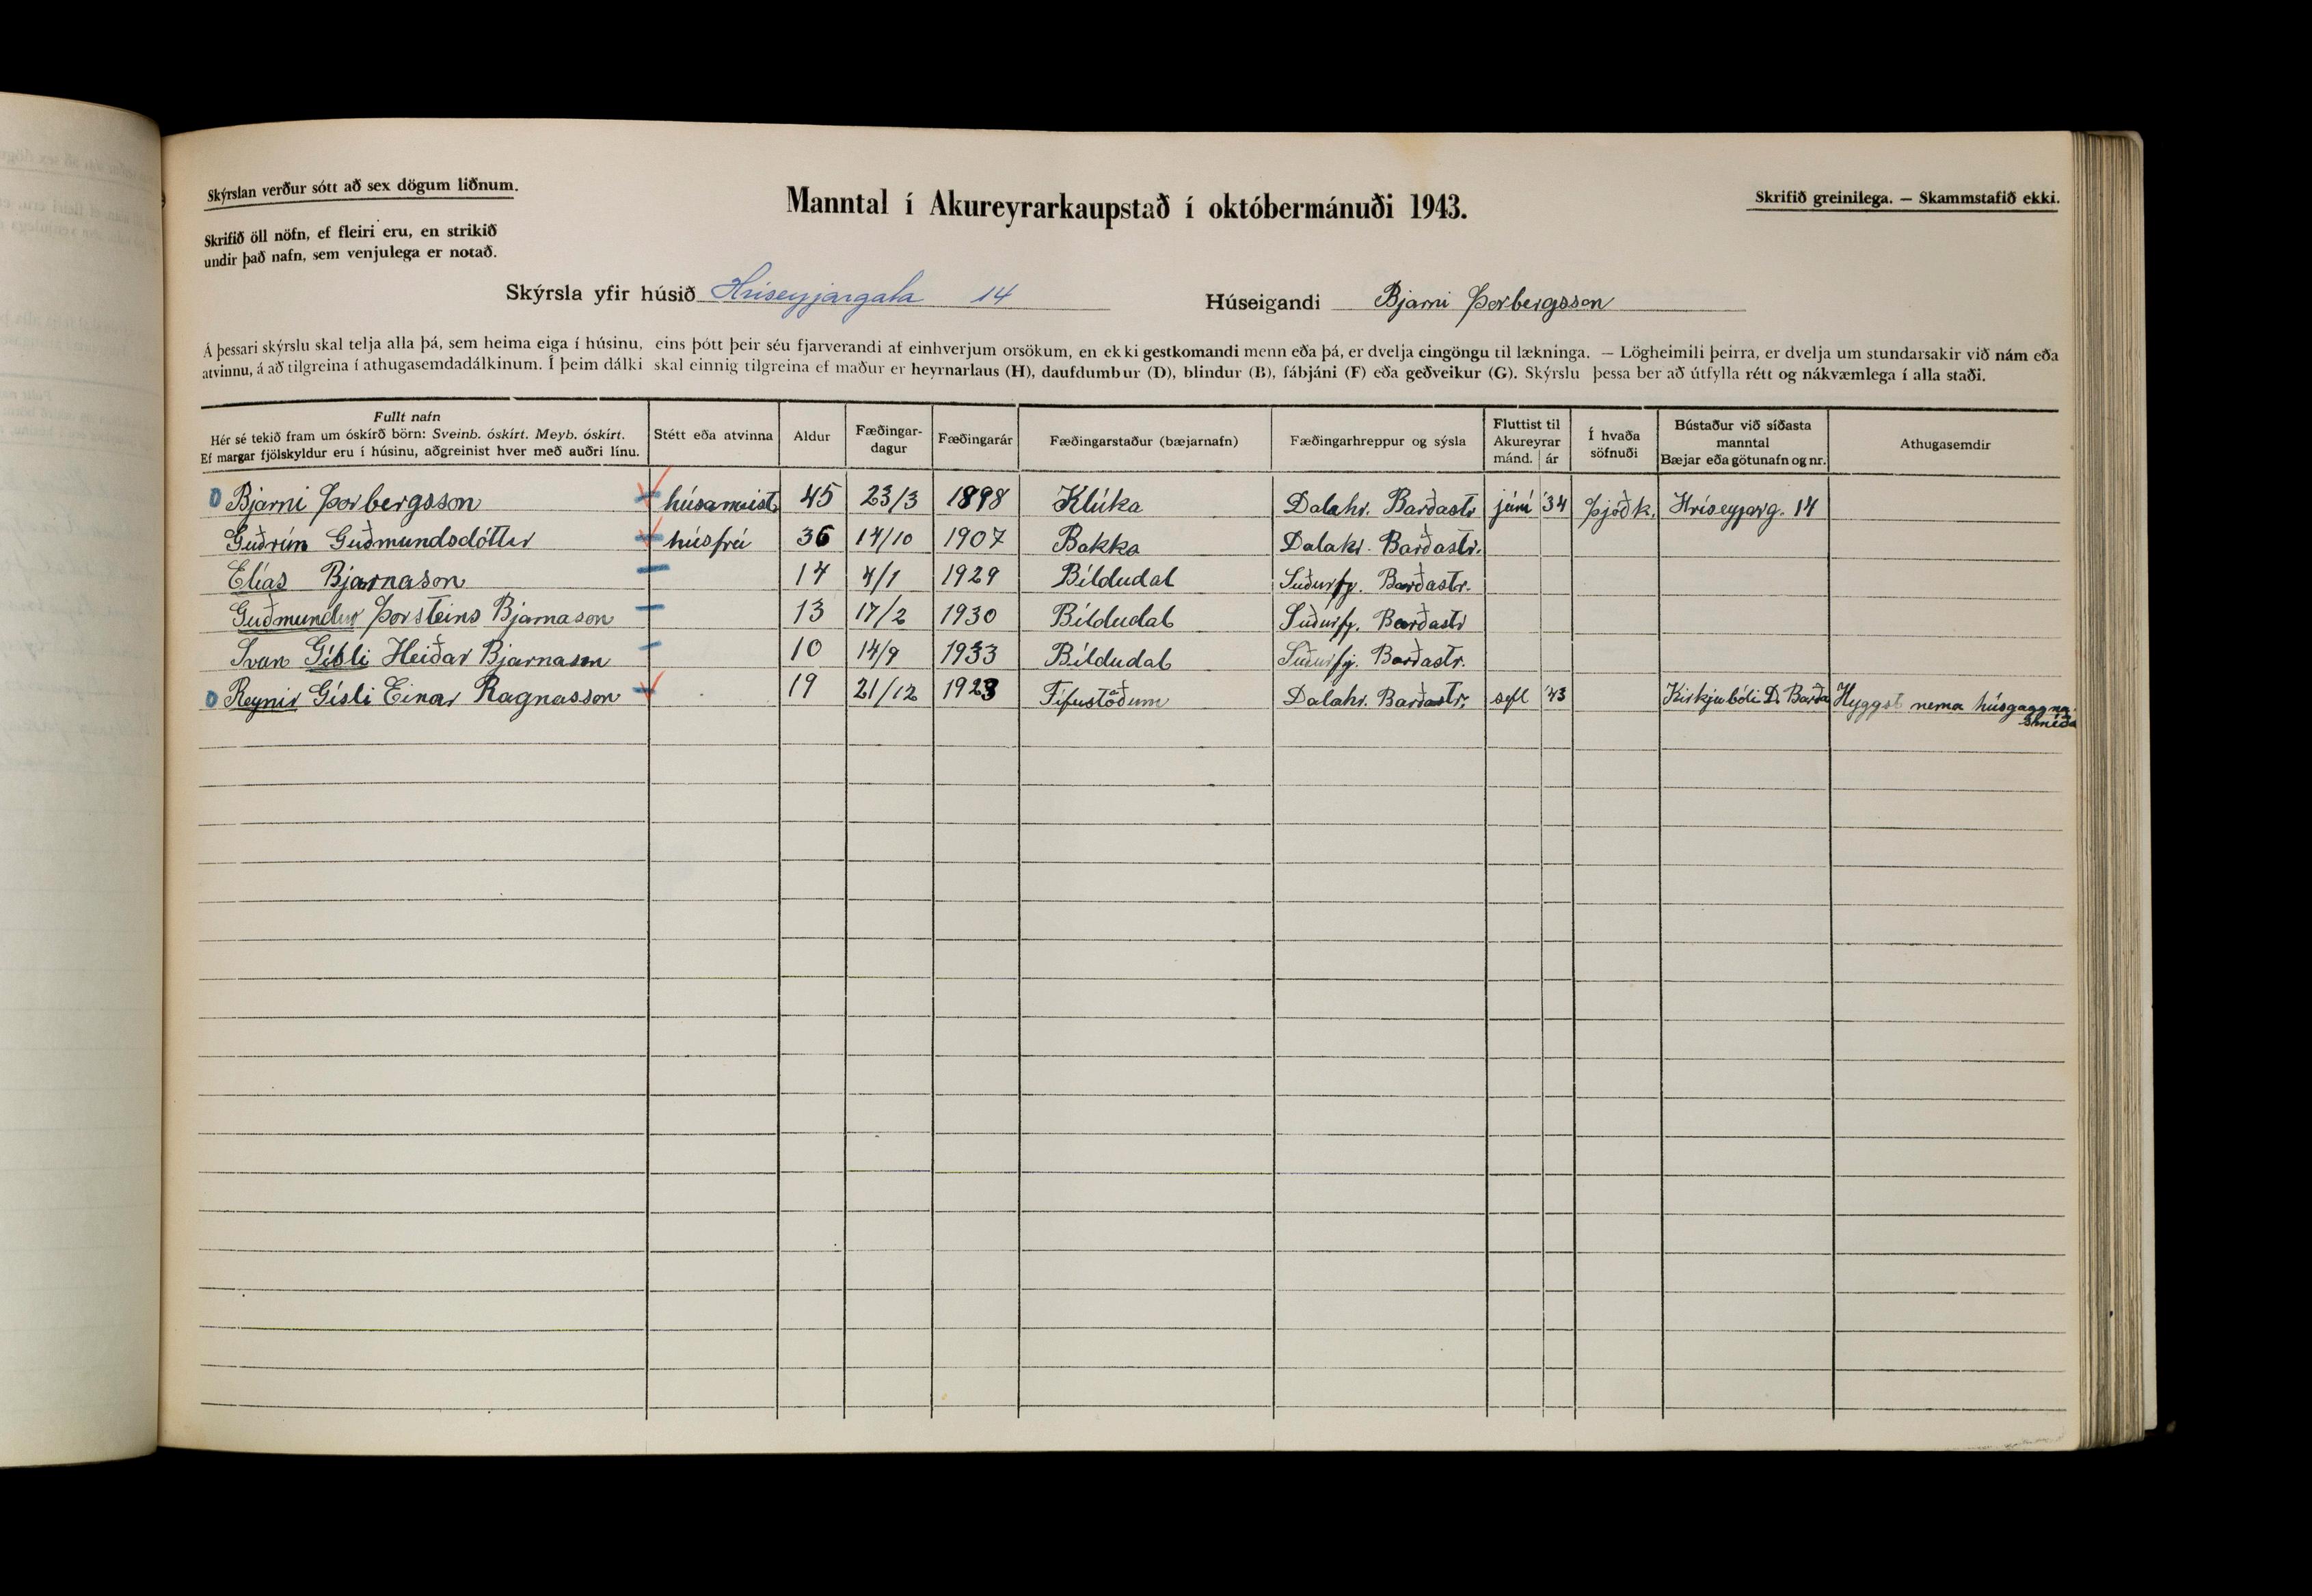 Skýrslan verður sótt að sex dögum liðnum.
Manntal í Akureyrarkaupstað í októbermánuði 1943.
Skrifið greinilega. — Skammstafið ekki.
Skrifið öll nöfn, ef fleiri eru, en strikið
undir það nafn, sem venjulega er notað.
Skýrsla yfir húsið Hríseyjargata 14
Húseigandi Bjarni Þorbergsson
Á þessari skýrslu skal telja alla þá, sem heima eiga í húsinu, eins þótt þeir séu fjarverandi af einhverjum orsökum, en ekki gestkomandi menn eða þá, er dvelja eingöngu til lækninga. — Lögheimili þeirra, er dvelja um stundarsakir við nám eða
atvinnu, á að tilgreina í athugasemdadálkinum. Í þeim dálki skal einnig tilgreina ef maður er heyrnarlaus (H), daufdumbur (D), blindur (B), fábjáni (F) eða geðveikur (G). Skýrslu þessa ber að útfylla rétt og nákvæmlega í alla staði.
Fullt nafn
Hér sé tekið fram um óskírð börn: Sveinb. óskírt. Meyb. óskírt.
Ef margar fjölskyldur eru í húsinu, aðgreinist hver með auðri línu.
Stétt eða atvinna
Aldur
Fæðingar-
dagur
Fæðingarár
Fæðingarstaður (bæjarnafn)
Fæðingarhreppur og sýsla
Fluttist til
Akureyrar
mánd. ár
Í hvaða
söfnuði
Bústaður við síðasta
manntal
Bæjar eða götunafn og nr.
Athugasemdir
Bjarni Þorbergsson húsameist. 45 23/3 1898 Klúka Dalahr. Barðastr júní '34 Þjóðk. Hríseyjarg. 14
Guðrún Guðmundsdóttir húsfrú 36 14/10 1907 Bakka Dalahr. Barðastr.
Elías Bjarnason 14 4/1 1929 Bíldudal Suðurfj. Barðastr.
Guðmundur Þorsteins Bjarnason 13 17/2 1930 Bíldudal Suðurfj. Barðastr
Ívan Gísli Heiðar Bjarnason 10 14/9 1933 Bíldudal Suðurfj. Barðastr.
Reynir Gísli Einar Ragnasson 19 21/12 1923 Fífustöðum Dalahr. Barðastr. sept '43 Kirkjubóli D. Barða Hyggst nema húsgagna
smíða